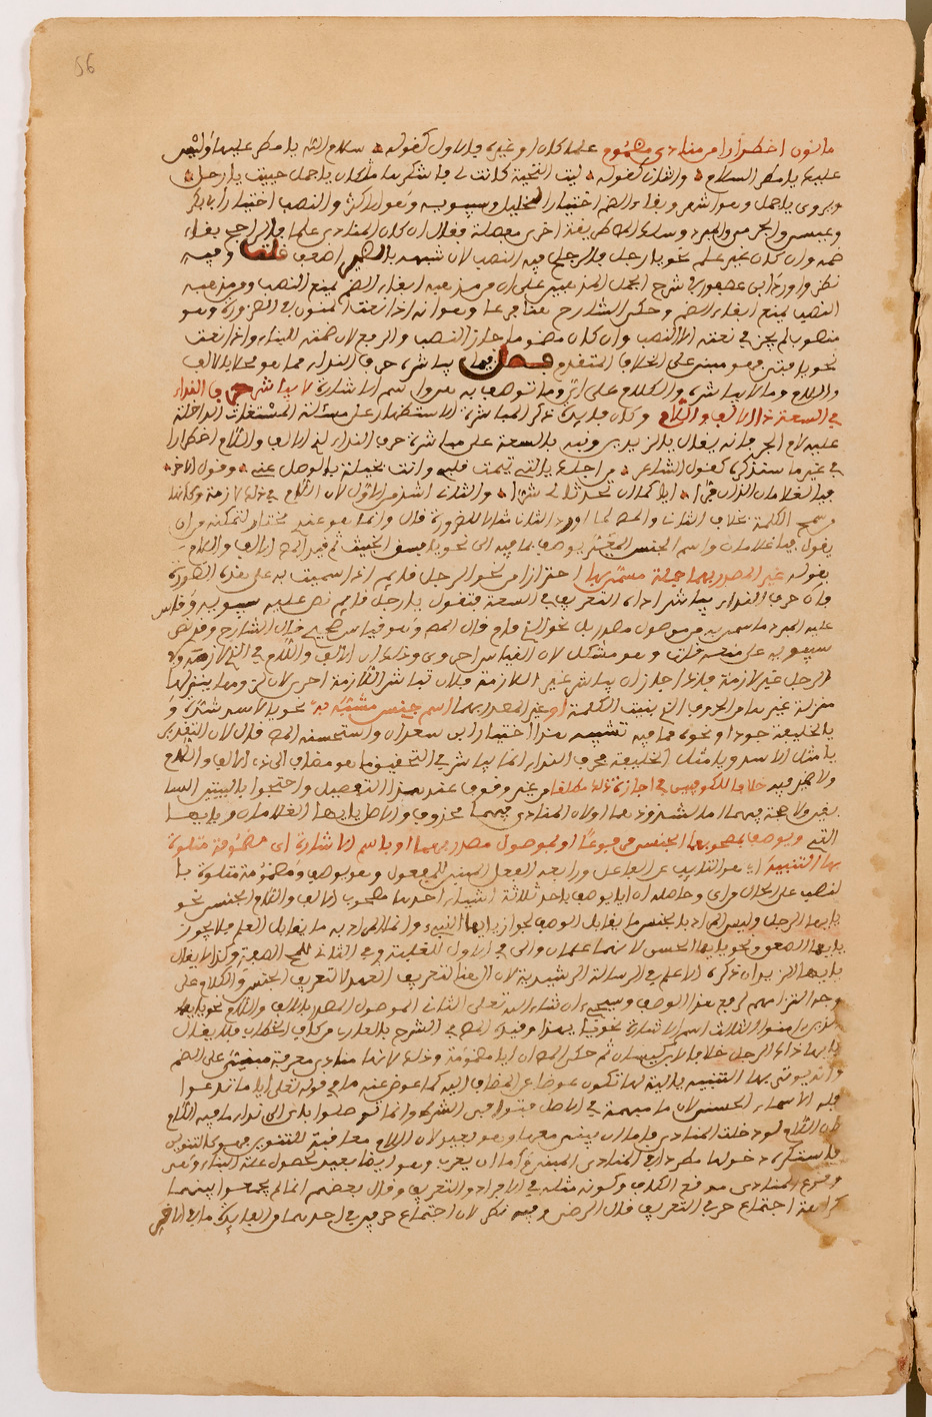 56
ما نون اضطرارا من منادى مضموم علما كان او غيره فالاول كقوله سلام الله يا مطر عليها وليس
عليك يا مطر السلام والثاني كقوله ليت التحية كانت لي فاشكرها مكان يا جمل حييت يا رجل
ويروى يا جمل وهو اشهر وبقاء الضم اختيار الخليل وسيبويه وهو الاكثر والنصب اختيار ابي بكر
وعيسى والجرمي والمبرد وسلك المص طريقة اخرى مفصلة فقال ان كان المنادى علما فالراجح بقاء
ضمه وان كان غير علم نحو يا رجل فالراجح فيه النصب لان شبهه بالضمير اضعف قلت وفيه
نظر واورد ابن عصفور في شرح الجمل المذهبين على ان من مذهبه ابقاء الضم يمنع النصب ومن مذهبه
النصب يمنع ابقاء الضم وحكى الشارح هنا فرعا وهو انه اذا نعت المنون في الضرورة وهو
منصوب لم يجز في نعته الا النصب وان كان مضموما جاز النصب والرفع لان ضمته للبناء واذا نعت
فهو مبني على الخلاف المتقدم فصل فيما يباشره حرف النداء مما هو محلا بالالف
واللام وما لا يباشره والكلام على اي وما توصف به هي واسم الاشارة لا يباشر حرف النداء
في السعة ذا الالف واللام وكان فائدة ذكر المباشرة الاستظهار على مسئلة المستغاث الداخلة
عليه لام الجر فانه يقال يا لزيد وقيد بالسعة على مباشرة حرف النداء لذي الالف واللام اضطرارا
في غير ما سنذكره كقول الشاعر من اجلك يا التي تيمت قلبي وانت بخيلة بالوصل عني وقول الاخر
فيا الغلامان اللذان فرا اياكما ان تحدثا لي شرا والثاني اشذ من الاول لان اللام في ذلك لازمة وكانها
من الكلمة بخلاف الثاني والمص لما اورد الثاني مثالا للضرورة قال وانما هو عنده مختار لتمكنه من ان
يقول فيا غلامان واسم الجنس المعين يوصف بما فيه ال نحو يا فسق الخبيث ثم قيد المص الالف واللام
بقوله غير المصدر بهما جملة مسمى بها احترازا من نحو الرجل قائم اذا سميت به على هذه الصورة
فان حرف النداء يباشر اداة التعريف في السعة فتقول يا الرجل قائم نص عليه سيبويه وقاس
عليه المبرد ما سمي به من موصول مصدر بال نحو الذي قام قال المص وهو قياس صحيح قال الشارح وقد نص
سيبويه على منعه قلت وهو مشكل لان القياس احروي وذلك ان الالف واللام في الذي لازمة وفي
الرجل غير لازمة فاذا اجاز ان يباشر غير اللازمة فلان تباشر اللازمة احرى
منزلة غيرها من الحروف التي بنيت الكلمة او غير المصدر بهما اسم جنس مشبه به نحو يا الاسد شدة و
يا الخليفة جودا ونحوه مما فيه تشبيه هذا اختيار ابن سعدان واستحسنه المص قال لان التقدير
يا مثل الاسد ويا مثل الخليفة فحرف النداء انما يباشر في التحقيق ما هو مضاف الى ذي الالف واللام
ولا ضير فيه خلافا للكوفيين في اجازة ذلك مطلقا من غير وقوف عند هذا التفصيل واحتجوا بالبيتين السا
بقين ولا حجة فيهما اما لشذوذهما اولان المنادى فيهما محذوف والاصل يا ايها الغلامان ويا ايها
التي ويوصف بمصحوبهما الجنسي مرفوعا او بموصول مصدر بهما او باسم الاشارة اي مضمومة متلوة
بهاء التنبيه
لنصب على الحال من اي وحاصله ان ايا يوصف باحد ثلاثة اشياء احدها مصحوب الالف واللام الجنسي نحو
يا ايها الرجل وليس المراد بالجنس ما يقابل الوصف لجواز يا ايها النبيء وانما المراد به ما يقابل العلم فلا يجوز
يا ايها الصعق ونحو يا ايها الحسن لانهما علمان وال في الاول للغلبة وفي الثاني للمح الصفة وكذا لا يقال
يا ايها الزيدان ذكره الاعلم في الرسالة الرشيدية لان
وجه التزامهم لرفع هذا الوصف وسيجيء ان شاء الله تعلى الثاني الموصول المصدر بالالف واللام نحو يا ايها
الذين امنوا الثالث اسم الاشارة نحو يا ايهذا وقيده المص في الشرح بالعاري من كاف الخطاب فلا يقال
يا ايها ذاك الرجل خلافا لابن كيسان ثم حكى المص ان ايا مضمومة وذلك لانها منادى معرفة مبني على الضم
وانه يوتى بها التنبيه تالية لها تكون عوضا عن المضاف اليه كما عوض عنه ما في قوله تعلى ايا ما تدعوا
فله الاسماء الحسنى لان ما مبهمة في الاصل
لان اللام لو دخلت المنادى فاما ان يبنى معها وهو بعيد لان اللام معاقبة للتنوين فهو كالتنوين
فاستنكره دخولها مطردا في المنادى المبني واما ان يعرب وهو ايضا بعيد لحصول علة البناء وهي
وقوع المنادى موقع الكاف وكونه مثله في الافراد والتعريف وقال بعضهم انما لم يجمعوا بينهما
كراهة اجتماع حرفي التعريف قال الرضي وفيه نظر لان اجتماع حرفين في احدهما من الفائدة ما في الاخر